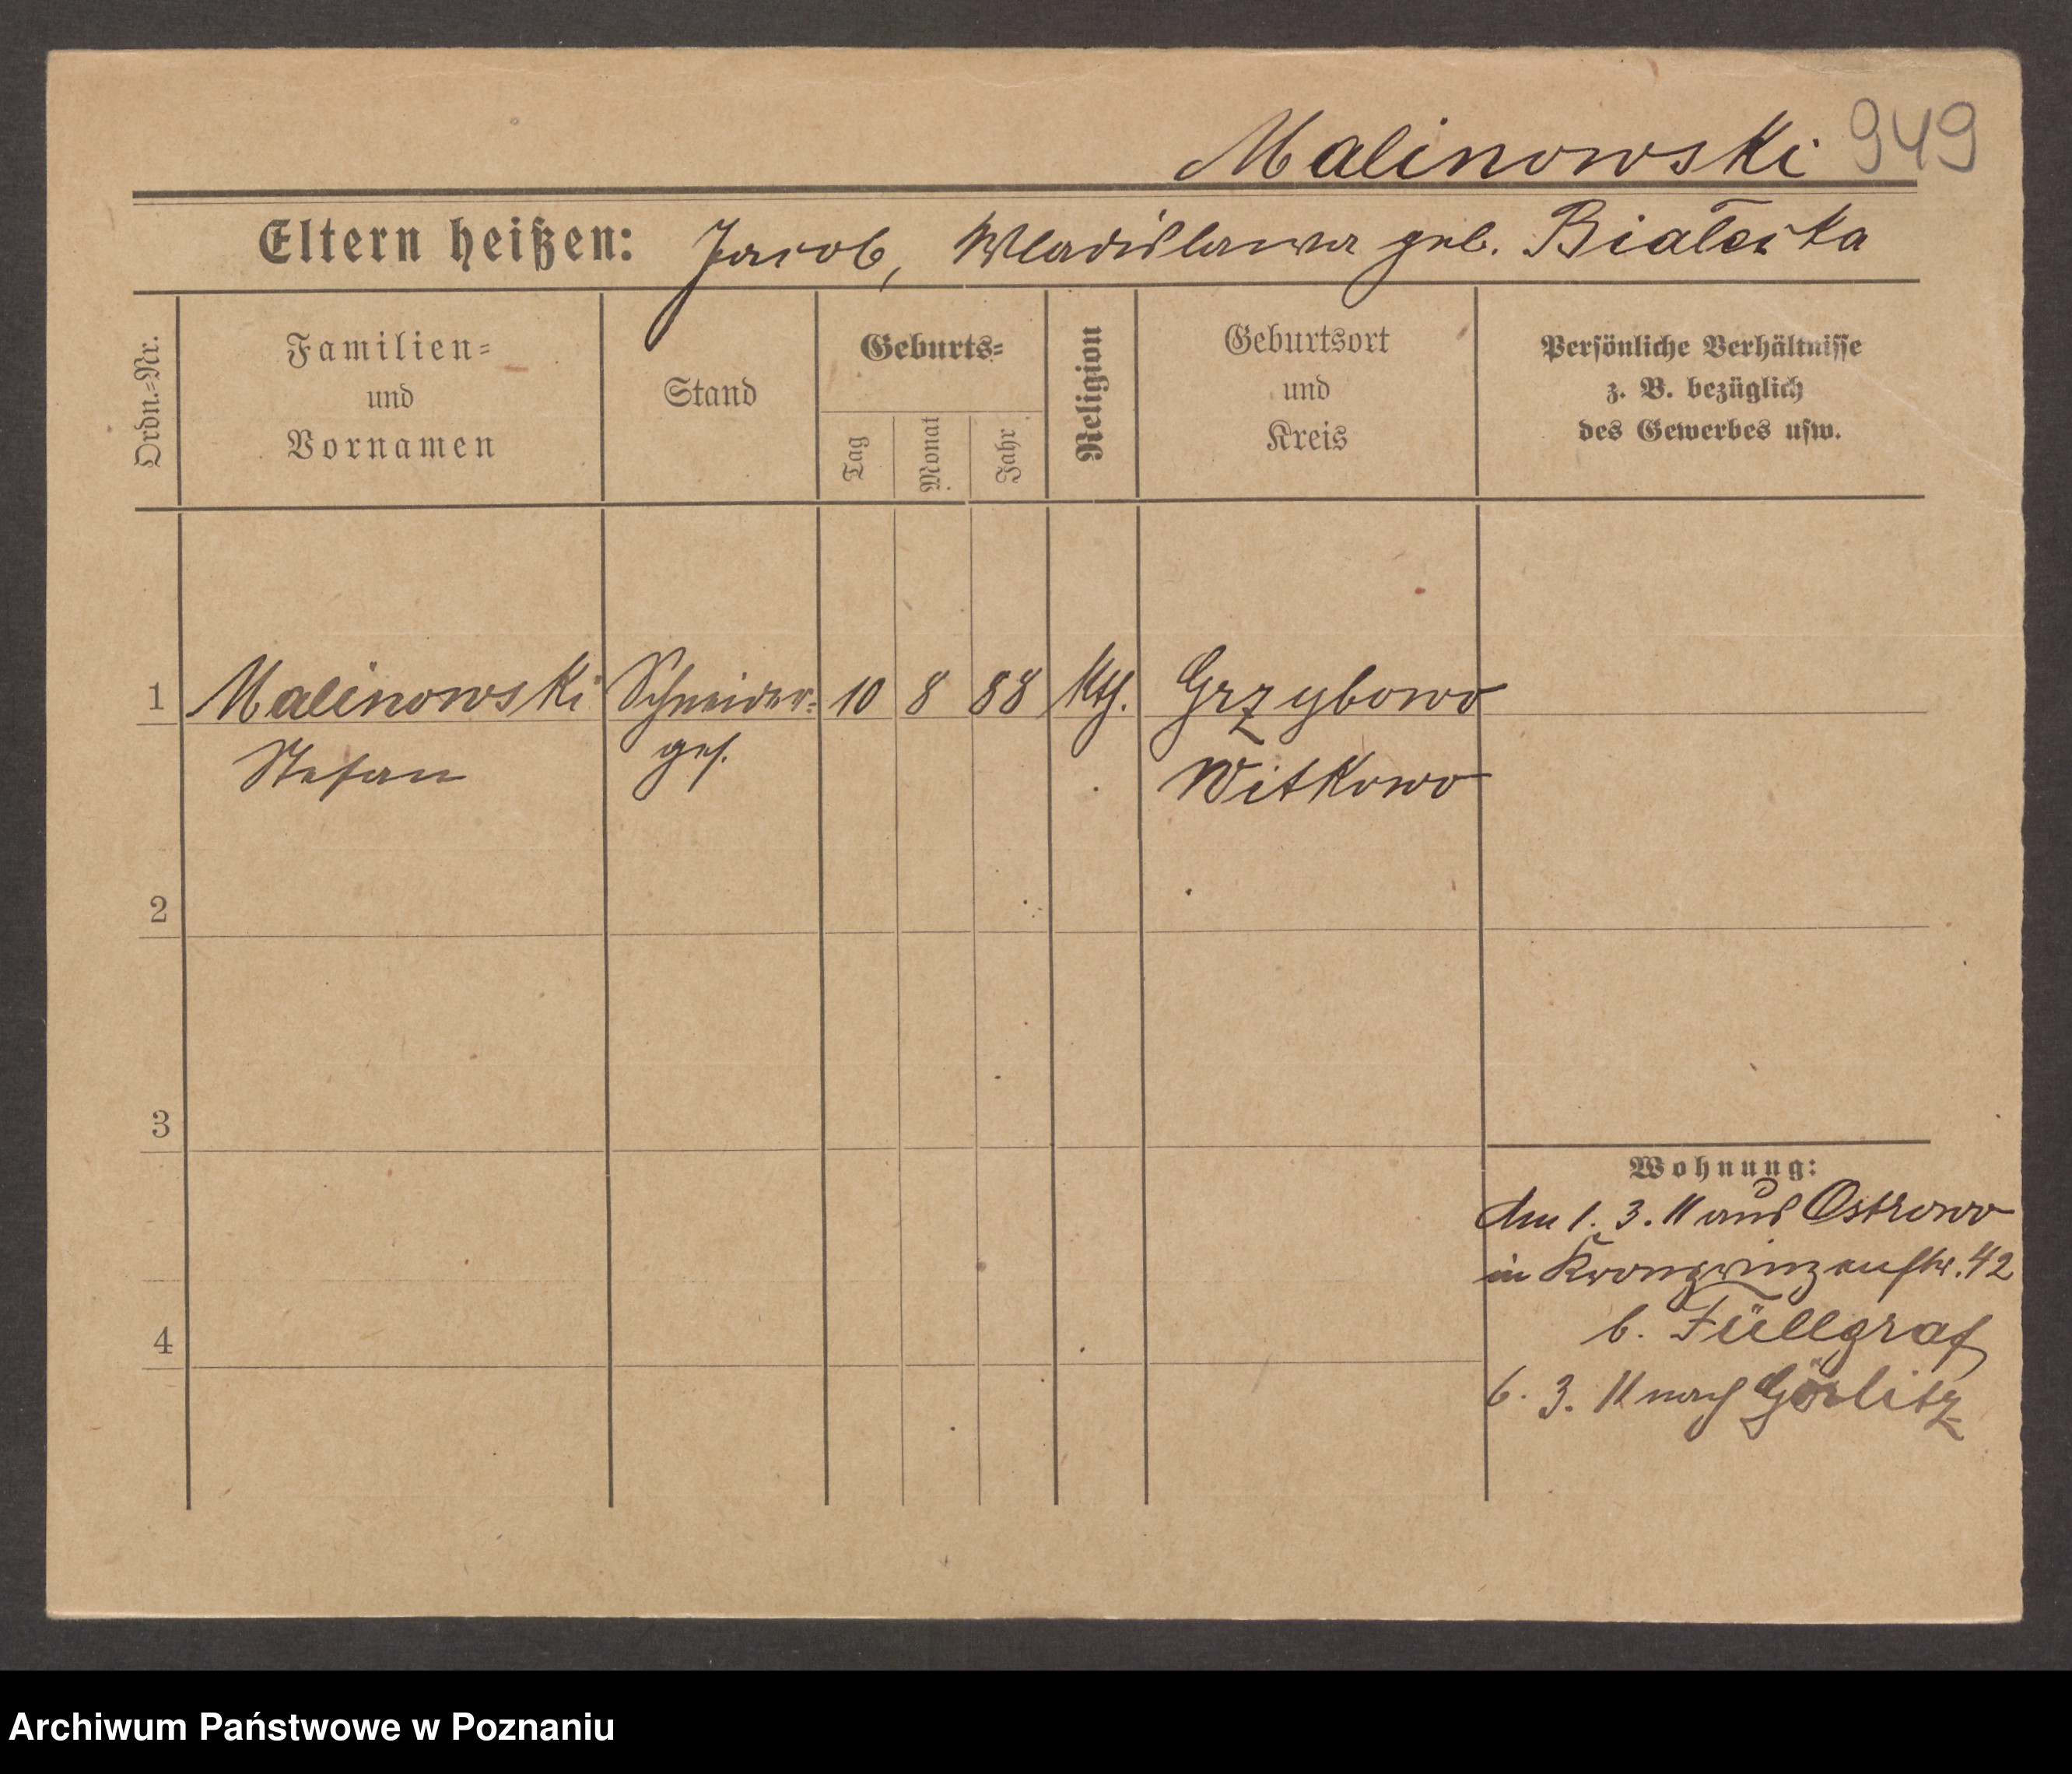 Malinowski 949
Eltern heißen: Jacob, Wladislawa geb. Białecka
Ordn.-Nr.
Familien-
und
Vornamen
Stand
Geburts-
Tag
Monat
Jahr
Religion
Geburtsort
und
Kreis
Persönliche Verhältnisse
z. B. bezüglich
des Gewerbes usw.
1 Malinowski Schneider- 10 8 88 kth. Grzybowo
Stefan ges. Witkowo
2
3
Wohnung:
Am 1. 3. 11 aus Ostrowo
in Kronprinzenstr. 42
b. Füllgraf
4
6. 3. 11 nach Görlitz
Archiwum Państwowe w Poznaniu